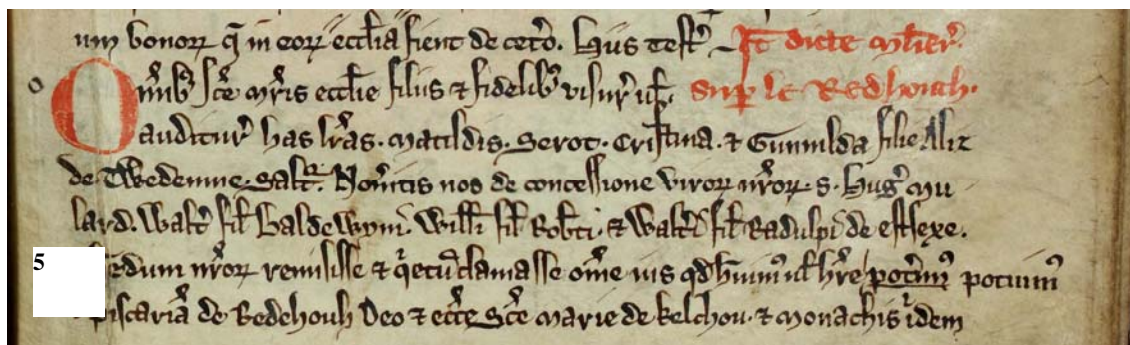 um bonorꝝ q̄ in eorꝝ eccl̄ia fient de cet̓o. Hiis test̓ – It̄ dicte ml̓ier̓.
Om̓ibꝫ sc̄e mr̓is eccl̄ie filiis ⁊ fidelibꝫ visur̓ ul̓. Sup̱ le Redhouch.
auditur̓ has lr̓as. Matildis. Serot. Cristina. ⁊ Gunnilda filie Aliz
de Twedemue. Salt̓. Nov̓itis nos de concessione virorꝝ nr̓orꝝ. s. Hug̓ mu
lard. Walt̓ fil̓ Baldewyni. Will̓i fil̓ Rob̓ti. ⁊ Walt̓i fil̓ Radulpi de estsexe.
5 rdum nr̓orꝝ remisisse ⁊ q̓etū clamasse om̄e ius qd̓ hūim᷒ ul̓ hr̄e pot̓im᷒ potuim᷒
piscariā de Redehouh Deo ⁊ ecc̄e Sc̄e Marie de kelchou. ⁊ monachis ib̓dem